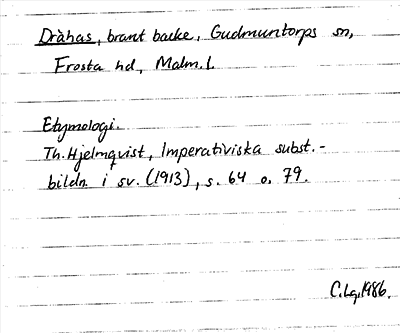 Dràhas, brant backe, Gudmuntorps sn,
Frosta hd, Malm.l.
Etymologi.
Th. Hjelmqvist, Imperativiska subst.-
bildn. i sv. (1913), s. 64 o. 79.
C.Lg.1986.